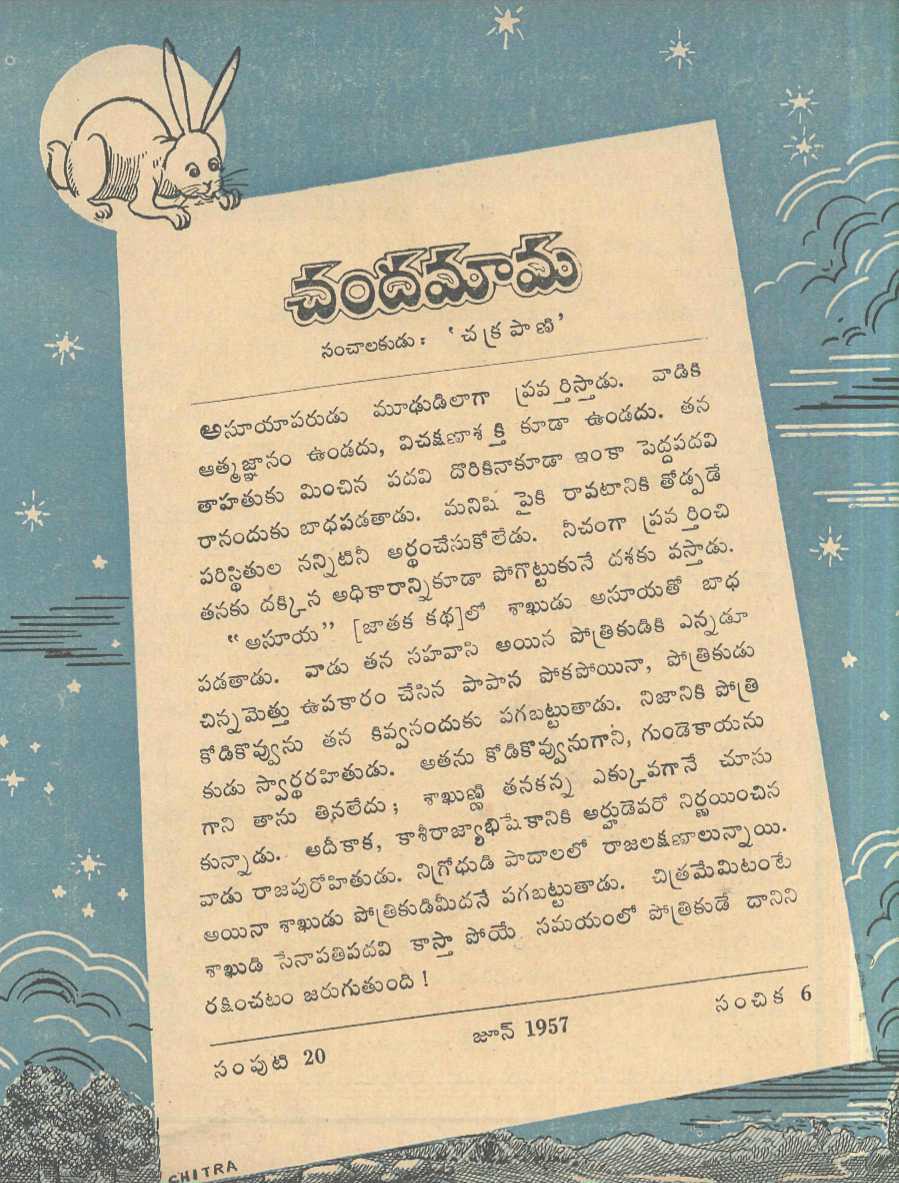 చందమామ
సంచాలకుడు : ‘చక్రపాణి’
అసూయాపరుడు మూఢుడిలాగా ప్రవర్తిస్తాడు. వాడికి
ఆత్మజ్ఞానం ఉండదు, విచక్షణాశక్తి కూడా ఉండదు. తన
తాహతుకు మించిన పదవి దొరికినాకూడా ఇంకా పెద్దపదవి
రానందుకు బాధపడతాడు. మనిషి పైకి రావటానికి తోడ్పడే
పరిస్థితుల నన్నిటినీ అర్థంచేసుకోలేడు. నీచంగా ప్రవర్తించి
తనకు దక్కిన అధికారాన్నికూడా పోగొట్టుకునే దశకు వస్తాడు.
“అసూయ” [జాతక కథ]లో శాఖుడు అసూయతో బాధ
పడతాడు. వాడు తన సహవాసి అయిన పోత్రికుడికి ఎన్నడూ
చిన్నమెత్తు ఉపకారం చేసిన పాపాన పోకపోయినా, పోత్రికుడు
కోడికొవ్వును తన కివ్వనందుకు పగబట్టుతాడు. నిజానికి పోత్రి
కుడు స్వార్థరహితుడు. అతను కోడికొవ్వునుగాని, గుండెకాయను
గాని తాను తినలేదు; శాఖుణ్ణి తనకన్న ఎక్కువగానే చూసు
కున్నాడు. అదీకాక, కాశీరాజ్యాభిషేకానికి అర్హుడెవరో నిర్ణయించిన
వాడు రాజపురోహితుడు. నిగ్రోధుడి పాదాలలో రాజలక్షణాలున్నాయి.
అయినా శాఖుడు పోత్రికుడిమీదనే పగబట్టుతాడు. చిత్రమేమిటంటే
శాఖుడి సేనాపతిపదవి కాస్తా పోయే సమయంలో పోత్రికుడే దానిని
రక్షించటం జరుగుతుంది!
సంపుటి 20 జూన్ 1957 సంచిక 6
CHITRA